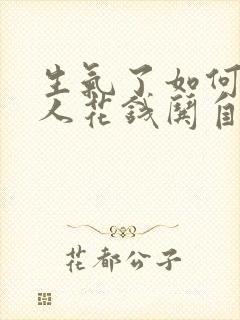 生氣了如何
人花錢闗自
花都公子